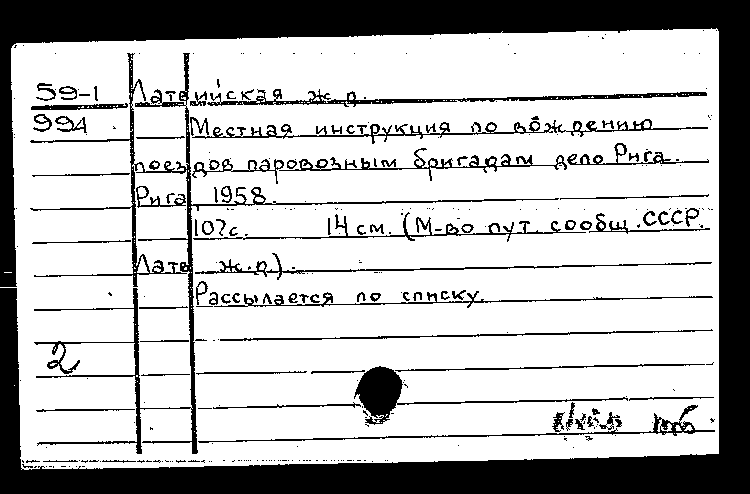 59-1 Латвийская ж.д.
994 Местная инструкция по вождению
поездов паровозным бригадам депо Рига.
Рига, 1958.
107с. 14 см. (М-во пут. сообщ. СССР.
Латв. ж.д.).
Рассылается по списку.
2